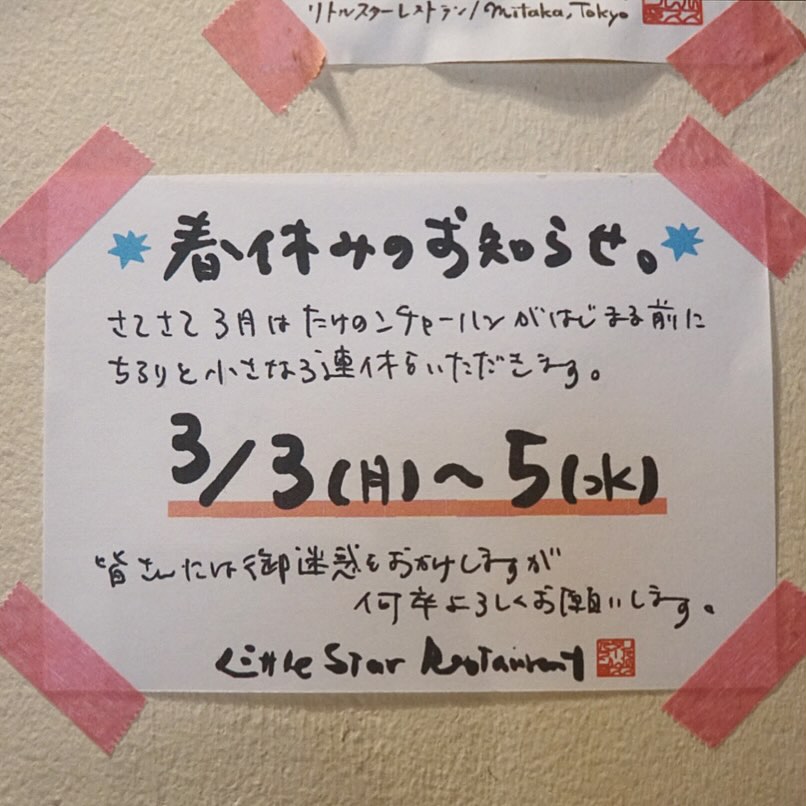 リトルスターレストラン/Mitaka,Tokyo
春休みのお知らせ。
さてさて3月はたけのこチャーハンがはじまる前に
ちろりと小さな3連休をいただきます。
3/3(月)～5(水)
皆さんには御迷惑をおかけしますが
何卒よろしくお願いします。
Little Star Restaurant